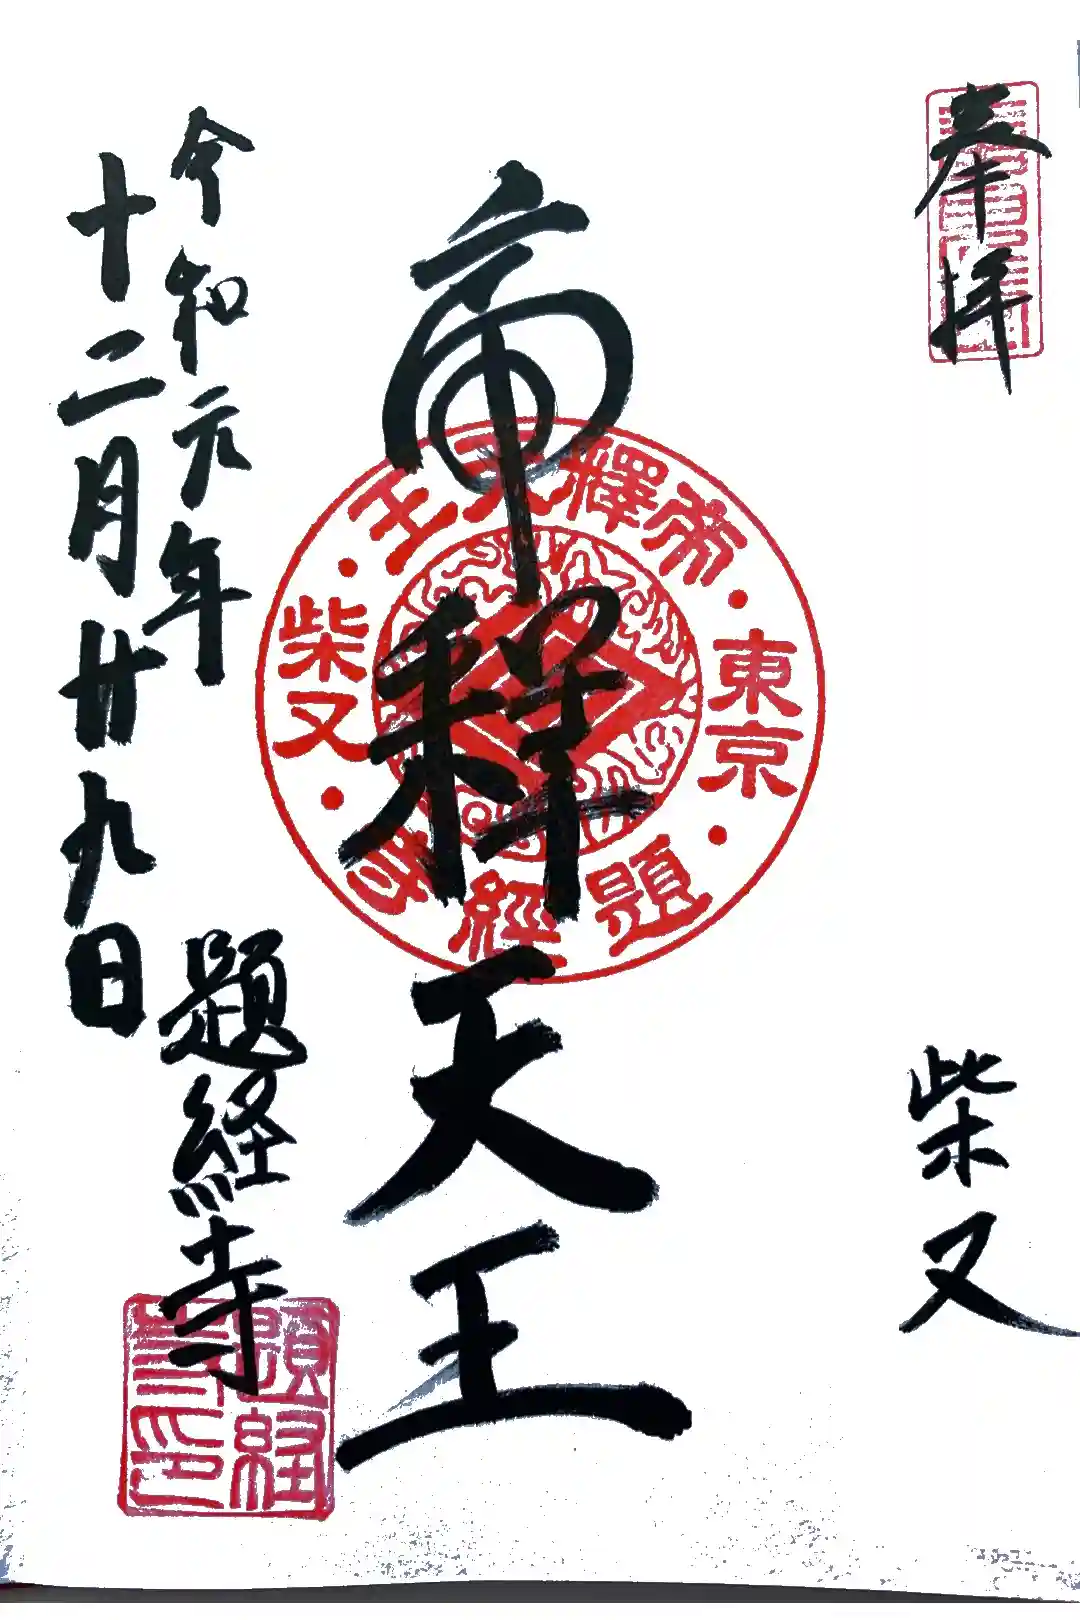 奉拝
柴又
帝釈天王
東京・帝釋天王・柴又・題經寺・
令和元年
十二月廿九日
題経寺
題経寺印